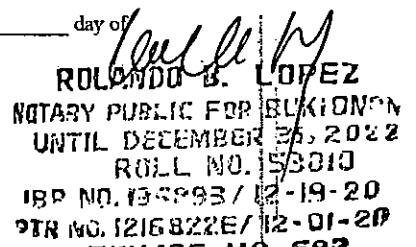 day of
ROLANDO B. LOPEZ
NOTARY PUBLIC FOR BUKIDNON
UNTIL DECEMBER 31, 2022
ROLL NO. 53010
IBP NO. / 12-19-20
PTR NO. 1216822E/ 12-01-20